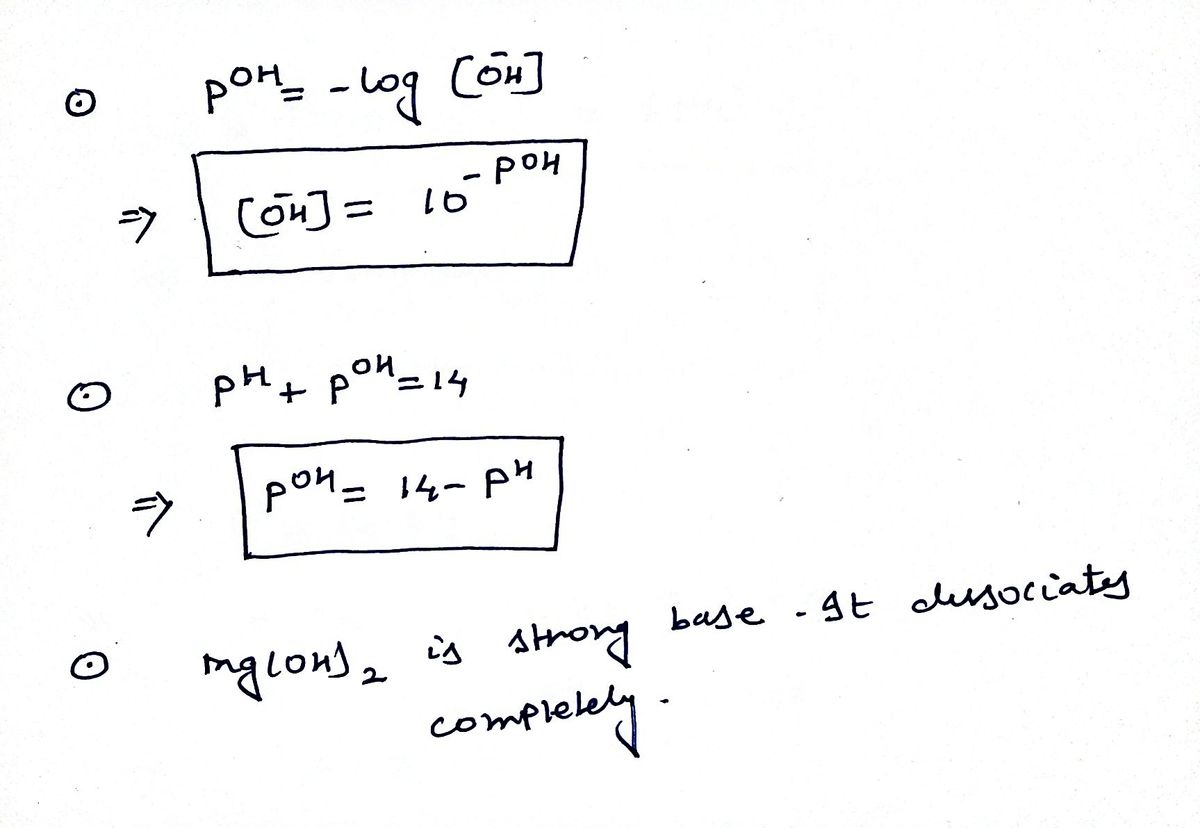 ⊙ pOH = -log [ŌH]
⇒ [ŌH] = 10^-pOH
⊙ pH + pOH = 14
⇒ pOH = 14 - pH
⊙ Mg(OH)2 is strong base. It dissociates
completely.